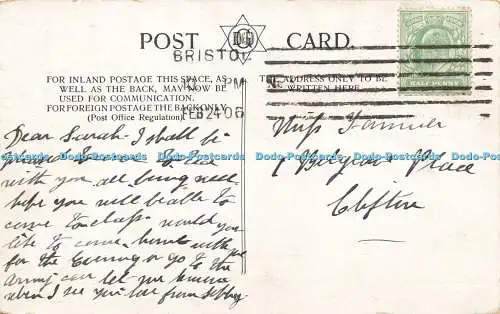 POST CARD.
D&G
BRISTOL
FEB 24 06
HALF PENNY
FOR INLAND POSTAGE THIS SPACE, AS
WELL AS THE BACK, MAY NOW BE
USED FOR COMMUNICATION.
FOR FOREIGN POSTAGE THE BACK ONLY
(Post Office Regulation).
THE ADDRESS ONLY TO BE
WRITTEN HERE.
Dear Sarah I shall be
pleased to come to tea
with you all being well
hope you will be able to
come to class would you
like to come home with me
for the Evening or go to the
Army let me know
when I see you love from
Miss
Place
Clifton
Dodo-Postcards Dodo-Postcards Dodo-Postcards Dodo-Postcards Dodo-Postcards